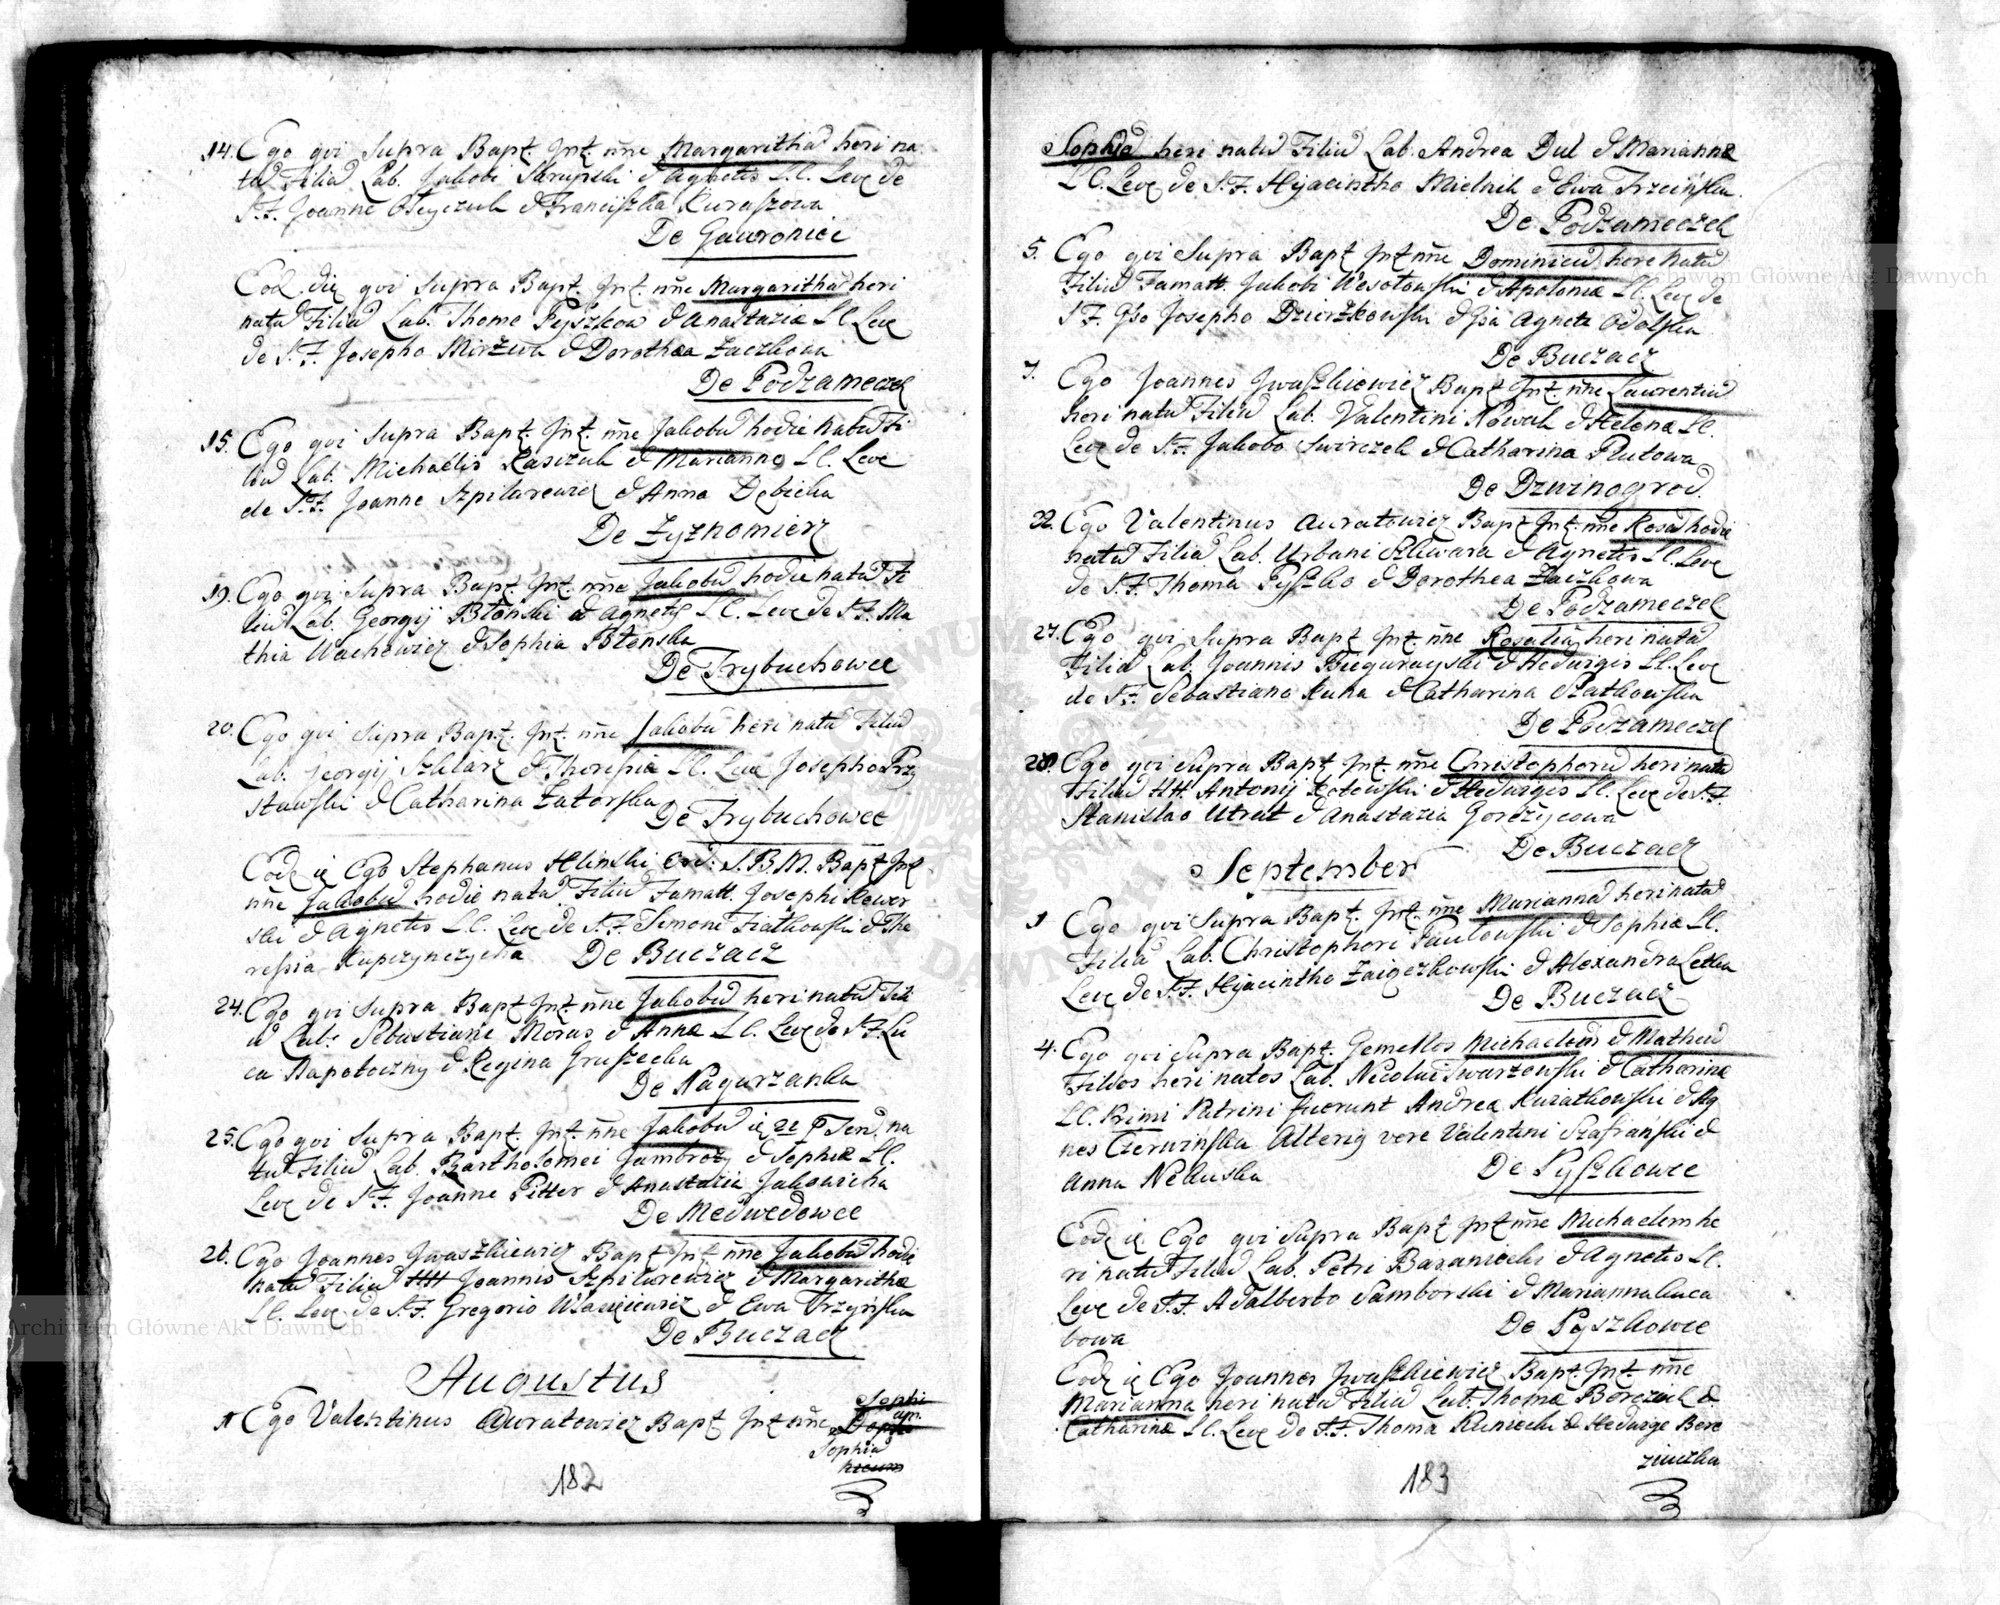 14. Ego qvi Supra Bapt. Jnt. nñe Margarithā heri na
tā Filiā Lab. Jakobi Skrupski & Agnetis L.C. Leve de
S.F. Joanne & Franciszka Kuraszowa
De Gawroniec
Eod. die qvi Supra Bapt. Jnt. nñe Margarithā heri
natā Filiā Lab. Thome Pyszkow & Anastazia LC Leve
de S.F. Josepho Mirzwa & Dorothea Zaczkowa
De Podzameczek
15. Ego qvi Supra Bapt. Jnt. nñe Jakobū hodie natū Fi
liū Lab. Michaelis Kasczuk & Marianne L.C. Leve
de S.F. Joanne Szpilarewicz & Anna Dębicka
De Zyznomierz
19. Ego qvi Supra Bapt. Jnt. nñe Jakobū hodie natū Fi
liū Lab. Georgij Błonski & Agnetis L.C. Leve de S.F. Ma
thia Wachowicz & Sophia Błonska
De Trybuchowce
20. Ego qvi Supra Bapt. Jnt. nñe Jakobū heri natū Filiū
Lab. Georgij Szklarz & Theresiæ L.C. Leve Josepho Przy
stawski & Catharina Zatorska
De Trybuchowce
Eod ie Ego Stephanus Hlinski Ord: S.B.M. Bapt Jnt
nñe Jakobū hodie natū Filiū Famatt. Josephi Kower
ski & Agnetis L.C. Leve de S.F. Simone Fiatkowski & The
resia Kupczynczycha De Buczacz
24. Ego qvi Supra Bapt Jnt nñe Jakobū heri natū Fili
ū Lab. Sebastiani Moras & Annæ L.C. Leve de S.F. Lu
ca Napotoczny & Regina Gruszecka
De Nagorzanka
25. Ego qvi Supra Bapt. Jnt. nñe Jakobū ie 22 Ten. na
tū Filiū Lab. Bartholomei Jambroży & Sophiæ LC.
Leve de S.F. Joanne Pitter & Anastazia Jakowicha
De Medwedowce
26. Ego Joannes Jwaszkiewicz Bapt Jnt nñe Jakobū hodie
natū Filiū HH Joannis Szpilarewicz & Margarithæ
L.C. Leve de S.F. Gregorio & Ewa Trzcyńska
De Buczacz
Augustus
1 Ego Valentinus Auratowicz Bapt Jnt nñe Sophi
am
Sophiā
182
Sophiā heri natā Filiā Lab. Andrea Dul & Mariannæ
L.C. Leve de S.F. Hyacintho Mielnik & Ewa Trzcińska.
De Podzameczek
5. Ego qvi Supra Bapt Jnt nñe Dominicū here natū
Filiū Famatt. Jakobi Wesołowski & Apoloniæ LC. Leve de
S F. Gso Josepho Dzierżkowski & Gsa Agnete Odolska
De Buczacz
7. Ego Joannes Jwaszkiewicz Bapt Jnt. nñe Laurentiū
heri natū Filiū Lab. Valentini Nowak & Helenæ LC.
Leve de S.F. Jakobo Swirczek & Catharina Plutowa
De Dzwinogrod.
22. Ego Valentinus Auratowicz Bapt Jnt. nñe Rosā hodie
natā Filiā Lab. Urbani Szkwara & Agnetis LC. Leve
de S.F. Thoma Pyszko & Dorothea Zaczkowa
De Podzameczek
27. Ego qvi Supra Bapt Jnt nñe Rosaliā heri natā
Filiā Lab. Joannis Biegarayski & Hedwigis LC. Leve
de S.F. Sebastiano Kuka & Catharina Szatkowska
De Podzameczek
28. Ego qvi Supra Bapt Jnt nñe Christophorū heri natū
Filiū HH. Antonij Kotowski & Hedwigis LC. Leve de S.F.
Stanislao Utrat & Anastazia Gorzycowa
De Buczacz
September
1 Ego qvi Supra Bapt. Jnt. nñe Mariannā heri natā
Filiā Lab. Christophori Pawłowski & Sophiæ LC.
Leve de S.F. Hyacintho Zaigczkowski & Alexandra Letka
De Buczacz
4. Ego qvi Supra Bapt. Gemellos Michaelem & Matheū
Filios heri natos Lab. Nicolai Twarzowski & Catharinæ
LC. Primi Patrini fuerunt Andrea Kwiatkowski & Ag
nes Czerwińska Alterig vere Valentini Szafrański &
Anna Neduska
De Pyszkowce
Eod ie Ego qvi Supra Bapt Jnt nñe Michaelem he
ri natū Filiū Lab. Petri Baraniecki & Agnetis LC.
Leve de S.F. Adalberto Samborski & Marianna Kuca
bowa
De Pyszkowce
Eod ie Ego Joannes Jwaszkiewicz Bapt. Jnt. nñe
Marianna heri natā Filiā Lab. Thomæ Berezuk &
Catharinæ L.C. Leve de S.F. Thoma Kuniecki & Hedwige Bere
ziuczka
183
Archiwum Główne Akt Dawnych
Archiwum Główne Akt Dawnych